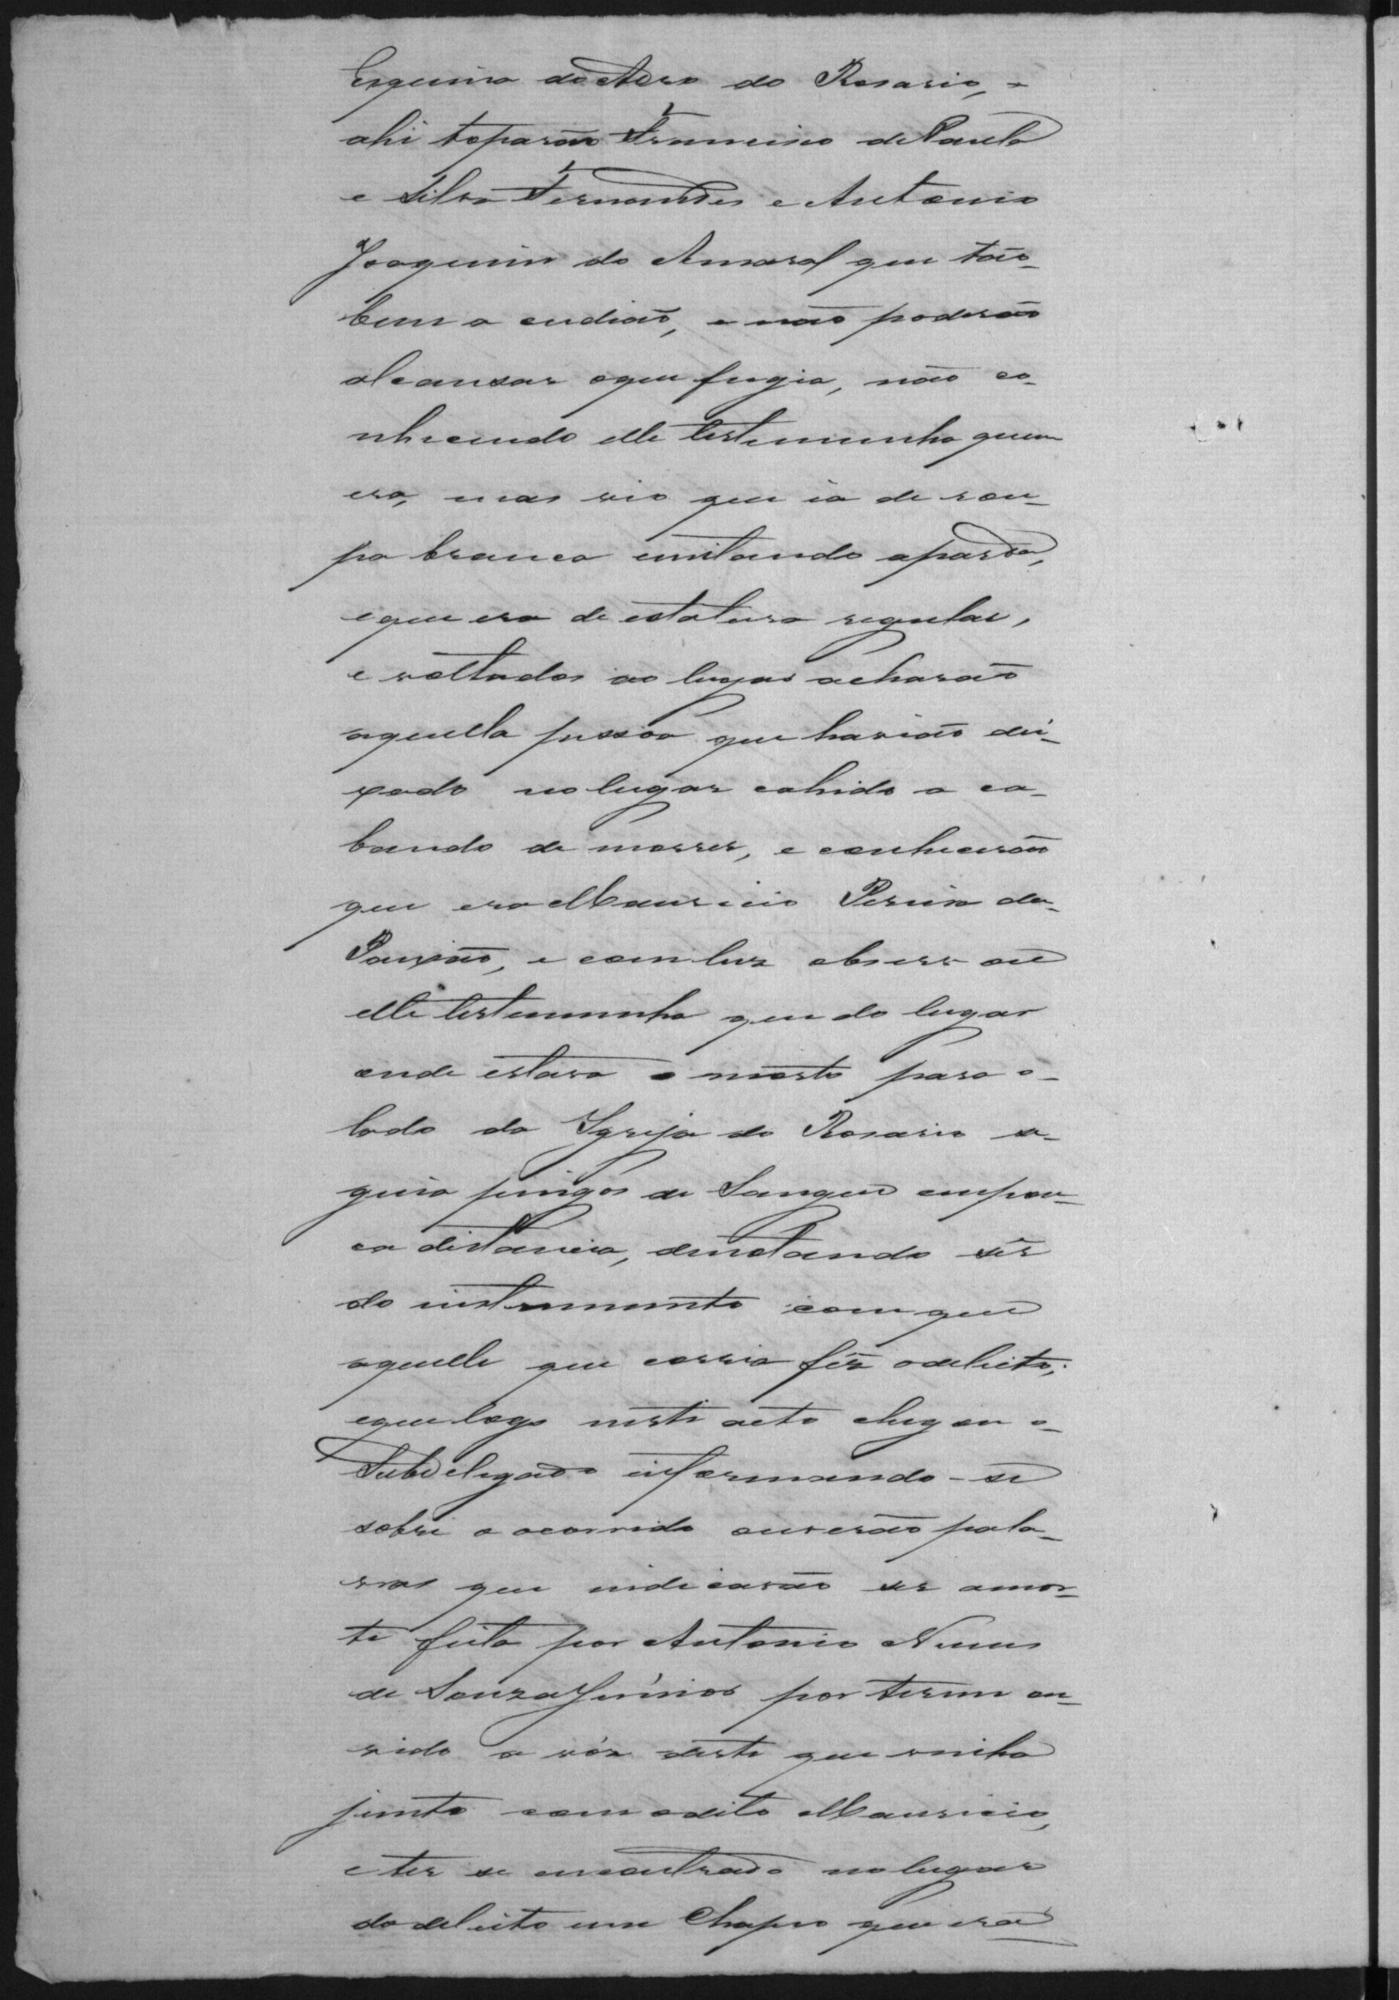 Esquina do Adro do Rosario, e
ahi toparão Francisco de Paula
e Silva Fernandes e Antonio
Joaquim do Amaral que tão-
bem a cudião, e não poderão
alcansar oque fugia, não co-
nhecendo elle testemunha quem
era, mas vio que ia de rou-
pa branca imitando aparda,
eque era de estatura regular,
e voltados ao lugar acharão
aquella pessoa que havião dei-
xado no lugar cahido a ca-
bando de morrer, e conhecerão
que era Mauricio Pereira da
Paixão, e com luz observou
elle testemunha que do lugar
onde estava o morto para o-
lado da Igreja do Rosario se-
guia pingos de Sangue empou-
ca distancia, denotando sêr
do instrumento com que
aquelle que corria fêz odelicto;
eque logo neste acto chegou o-
Subdelegado informando-se
sobre o ocorrido ouverão pala-
vras que indicarão ser amor-
te feita por Antonio Nunes
de Souza Junior por terem ou-
vido a vóz deste que vinha
junto com odito Mauricio,
e ter se encontrado no lugar
do delicto um Chapeo que era